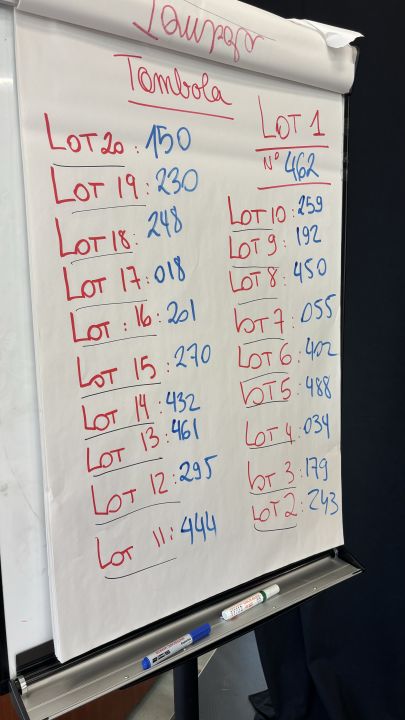 Tombola
LOT 20 : 150
LOT 19 : 230
LOT 18 : 248
LOT 17 : 018
LOT : 16 : 201
LOT 15 : 270
LOT 14 : 432
LOT 13 : 461
LOT 12 : 295
LOT 11 : 444
LOT 1
N° 462
LOT 10 : 259
LOT 9 : 192
LOT 8 : 450
LOT 7 : 055
LOT 6 : 402
LOT 5 : 488
LOT 4 : 034
LOT 3 : 179
LOT 2 : 243